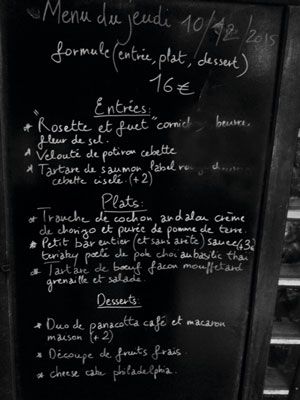 Menu du jeudi 10/12/2015
formule (entrée, plat, dessert)
16€
Entrées:
* "Rosette et fuet" cornich beurre,
fleur de sel.
* Velouté de potiron cebette
* Tartare de saumon label roug
cebette ciselé. (+2)
Plats:
* Tranche de cochon andalou crème
de chorizo et purée de pomme de terre.
* Petit bar entier (et sans arête) sauce (+3€)
teriaky poélé de pok choi au basylic thai
* Tartare de bœuf façon mouffetard
grenaille et salade.
Desserts:
* Duo de panacotta café et macaron
maison (+2)
* Découpe de fruits frais.
* cheese cake philadelphia.